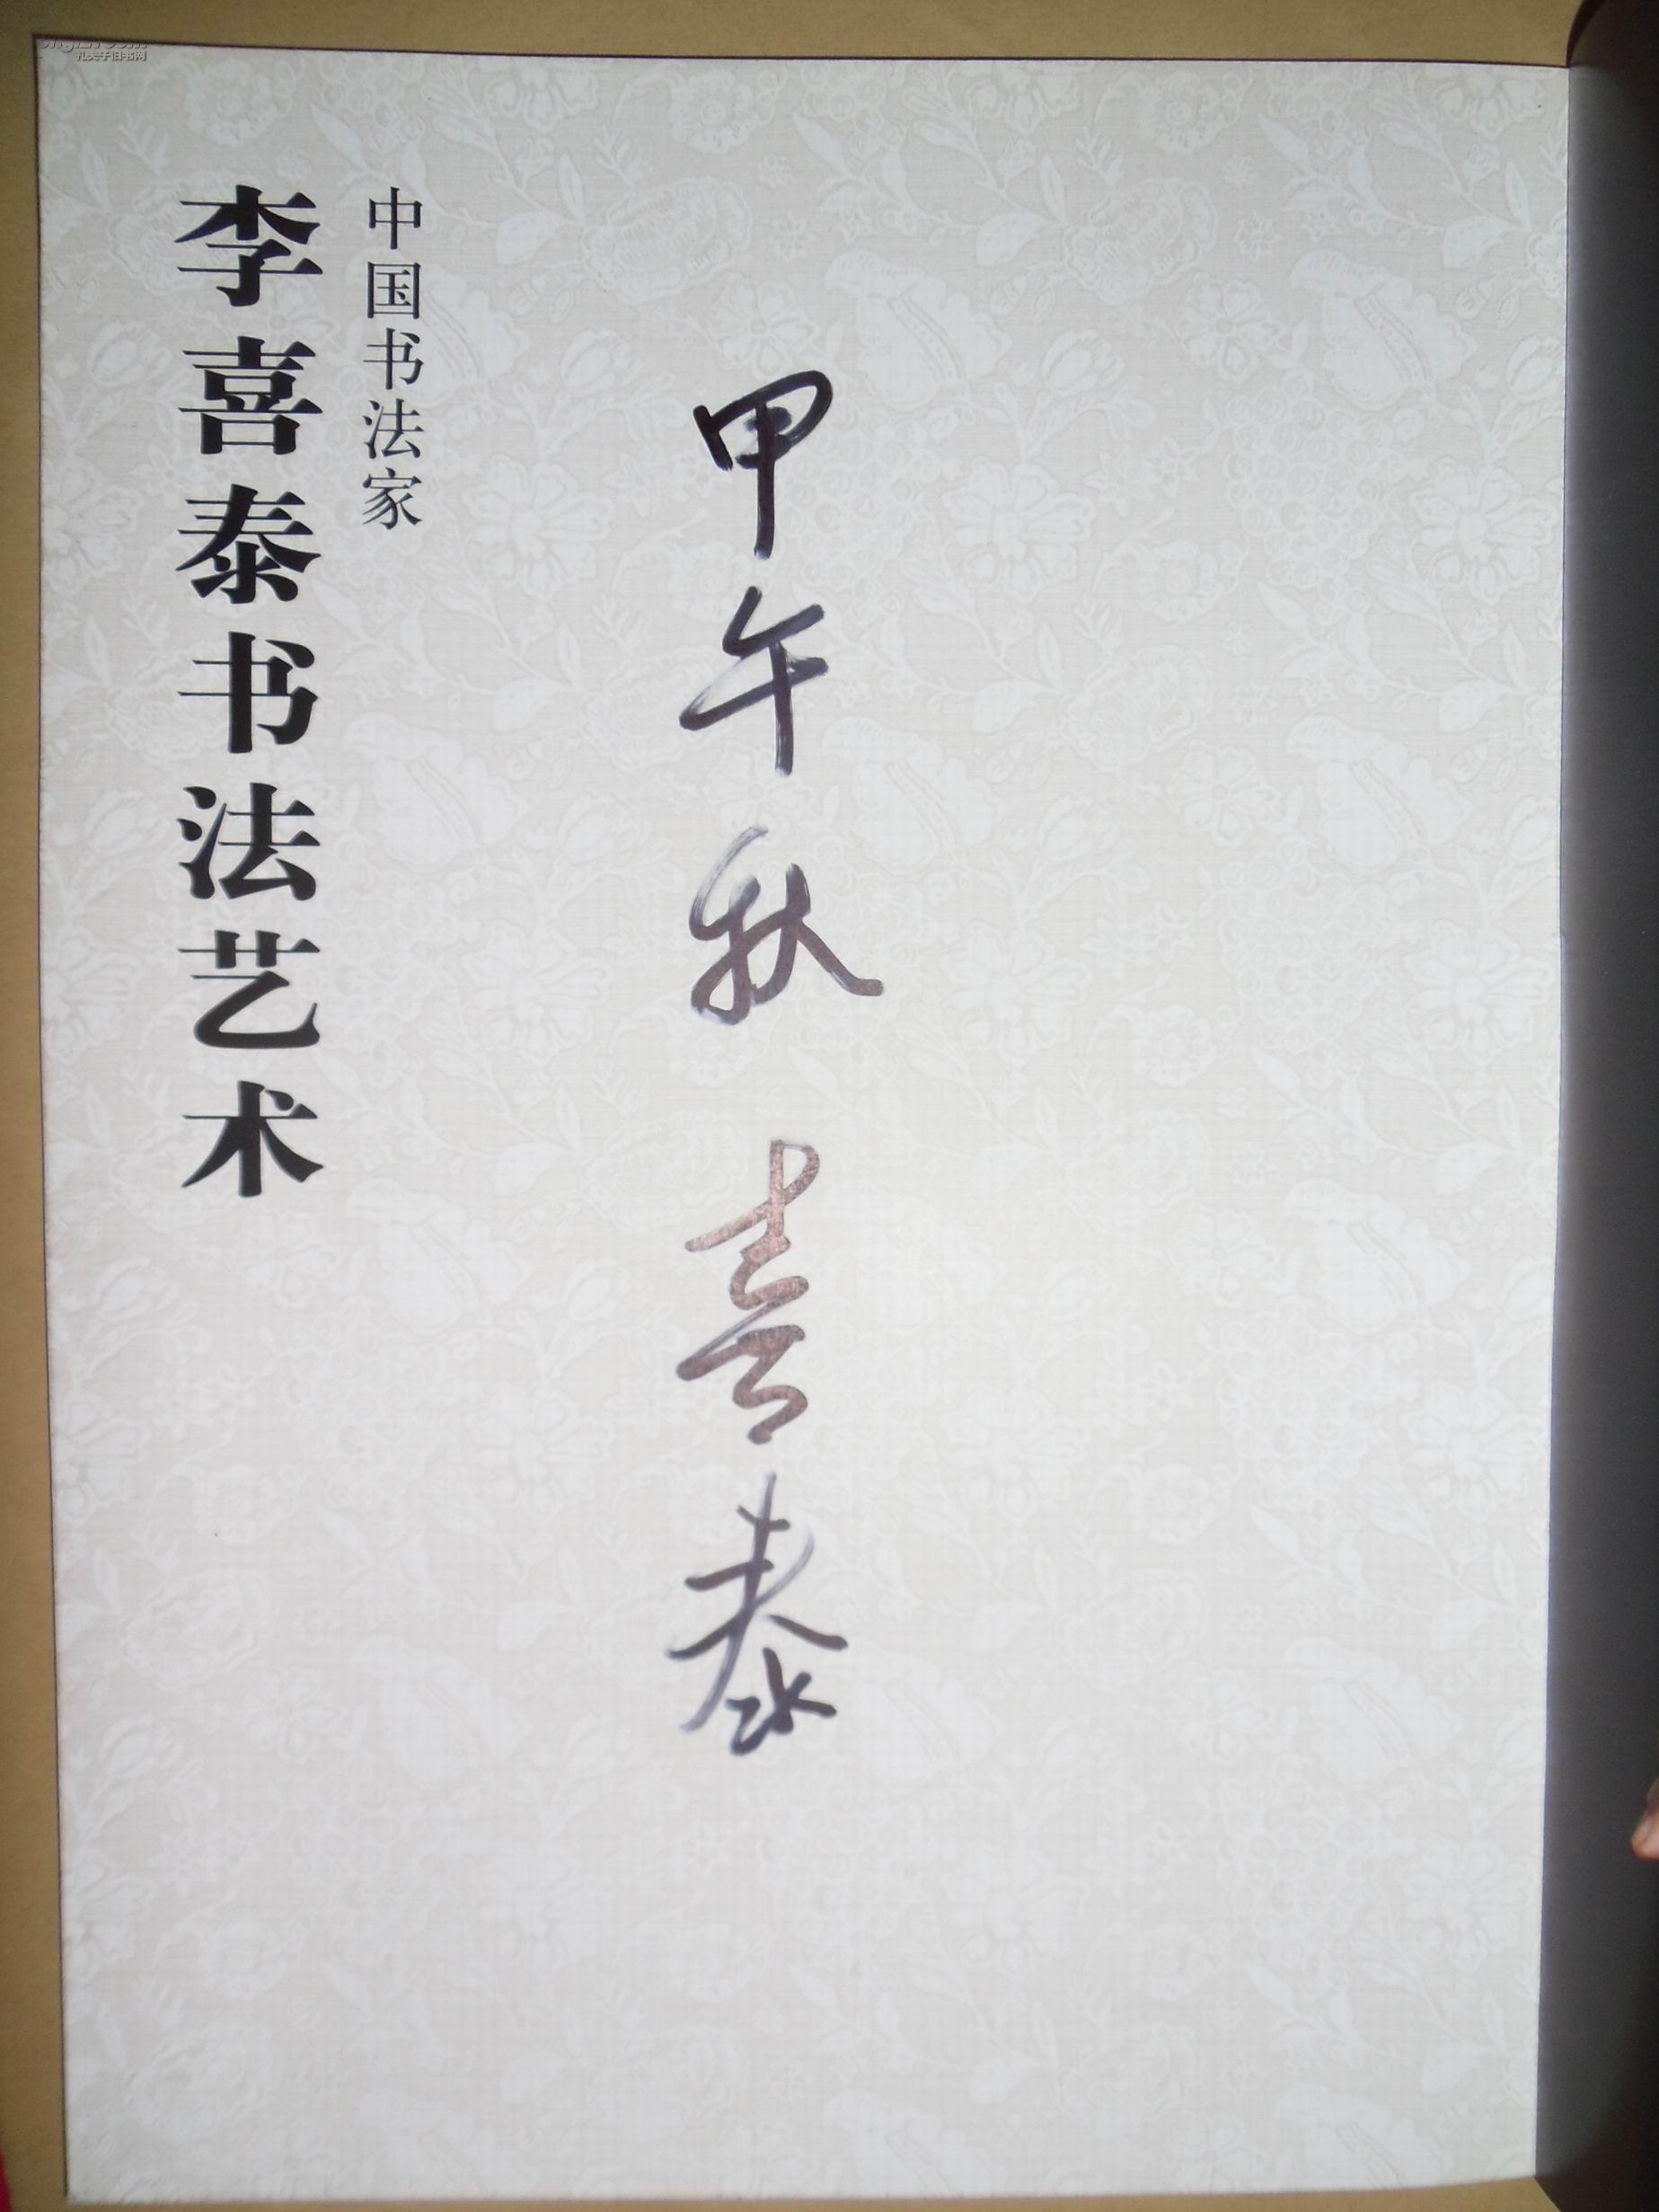 中国书法家
李喜泰书法艺术
甲午秋 喜泰
孔夫子旧书网